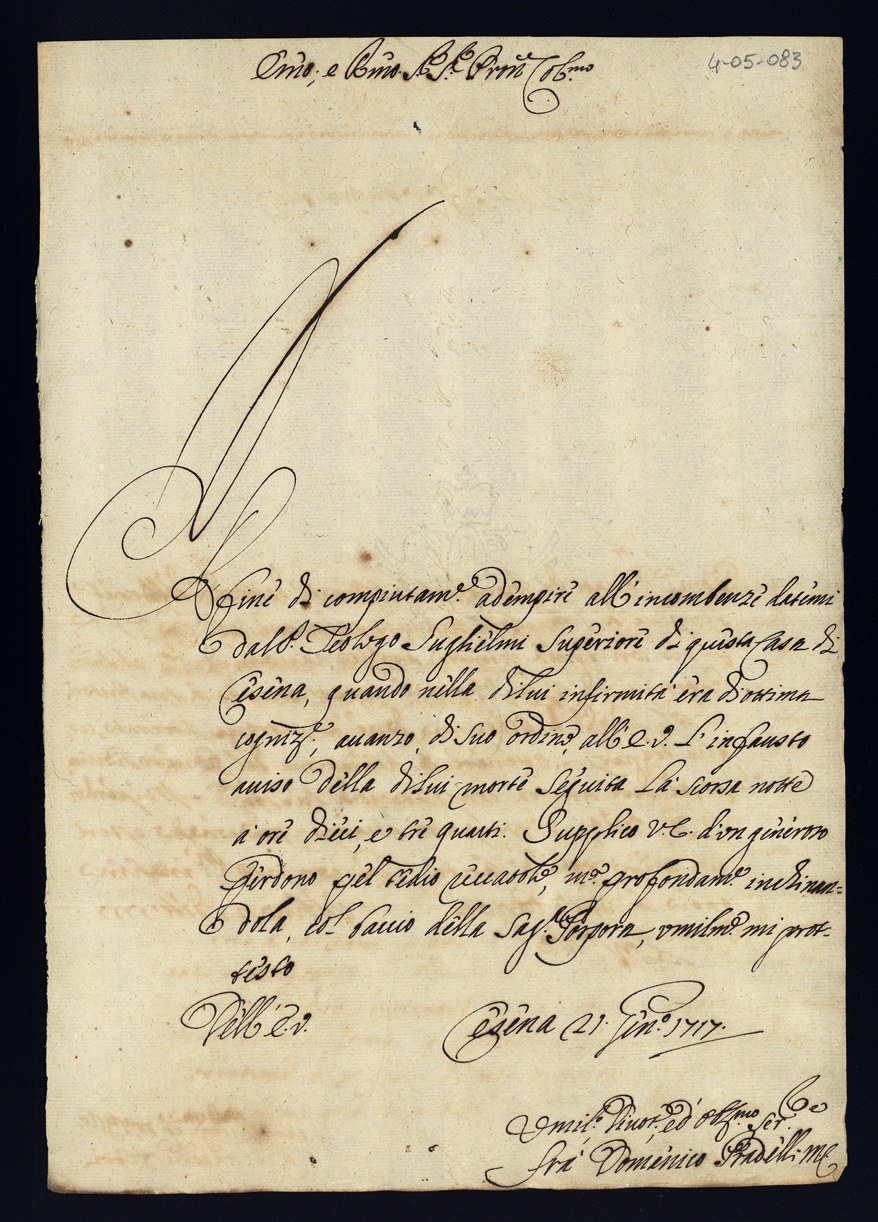 4-05-083
Emo, e Rmo Sig.r Sig.r Pron Col.mo
Affine di compiutam.e adempire all'incombenze datemi
dal P. Teologo Guglielmi Superiore di questa Casa di
Cesena, quando nella di lui infirmità era d'ottima
cogniz.e, avanzo, di suo ordine, all'E.V. l'infausto
aviso della di lui morte seguita la scorsa notte
a ore dieci, e tre quarti. Supplico V.E. d'un generoso
perdono pel tedio, m.e profondam.e inchinan-
dola, col baccio della Sag.a Porpora, umilm.e mi prot-
testo
Dell'E.V. Cesena 21. Gen.o 1717.
Umil.o Divot.o ed Obl.mo Ser.e
Frà Domenico Pradelli